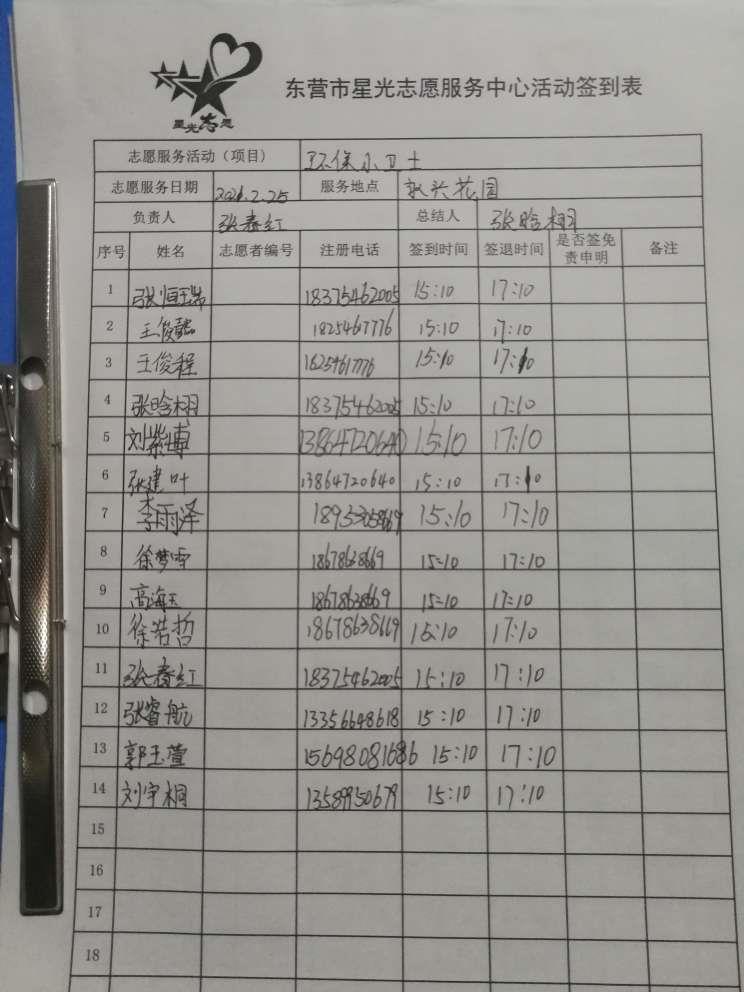 星光志愿
东营市星光志愿服务中心活动签到表
志愿服务活动（项目） 环保小卫士
志愿服务日期 服务地点 花园
负责人 张春红 总结人 张晗栩
序号 姓名 志愿者编号 注册电话 签到时间 签退时间 是否签免责申明 备注
1 张恒瑞 18375462005 15:10 17:10
2 王俊懿 1825467776 15:10 17:10
3 王俊程 15:10 17:10
4 张晗栩 18375462005 15:10 17:10
5 刘紫博 13864720640 15:10 17:10
6 张建叶 13864720640 15:10 17:10
7 李雨泽 15:10 17:10
8 徐梦雪 18678638669 15:10 17:10
9 高海玉 18678638669 15:10 17:10
10 徐若哲 18678638669 15:10 17:10
11 张春红 18375462005 15:10 17:10
12 张睿航 13356648618 15:10 17:10
13 郭玉萱 15698081686 15:10 17:10
14 刘宇桐 13589950679 15:10 17:10
15
16
17
18